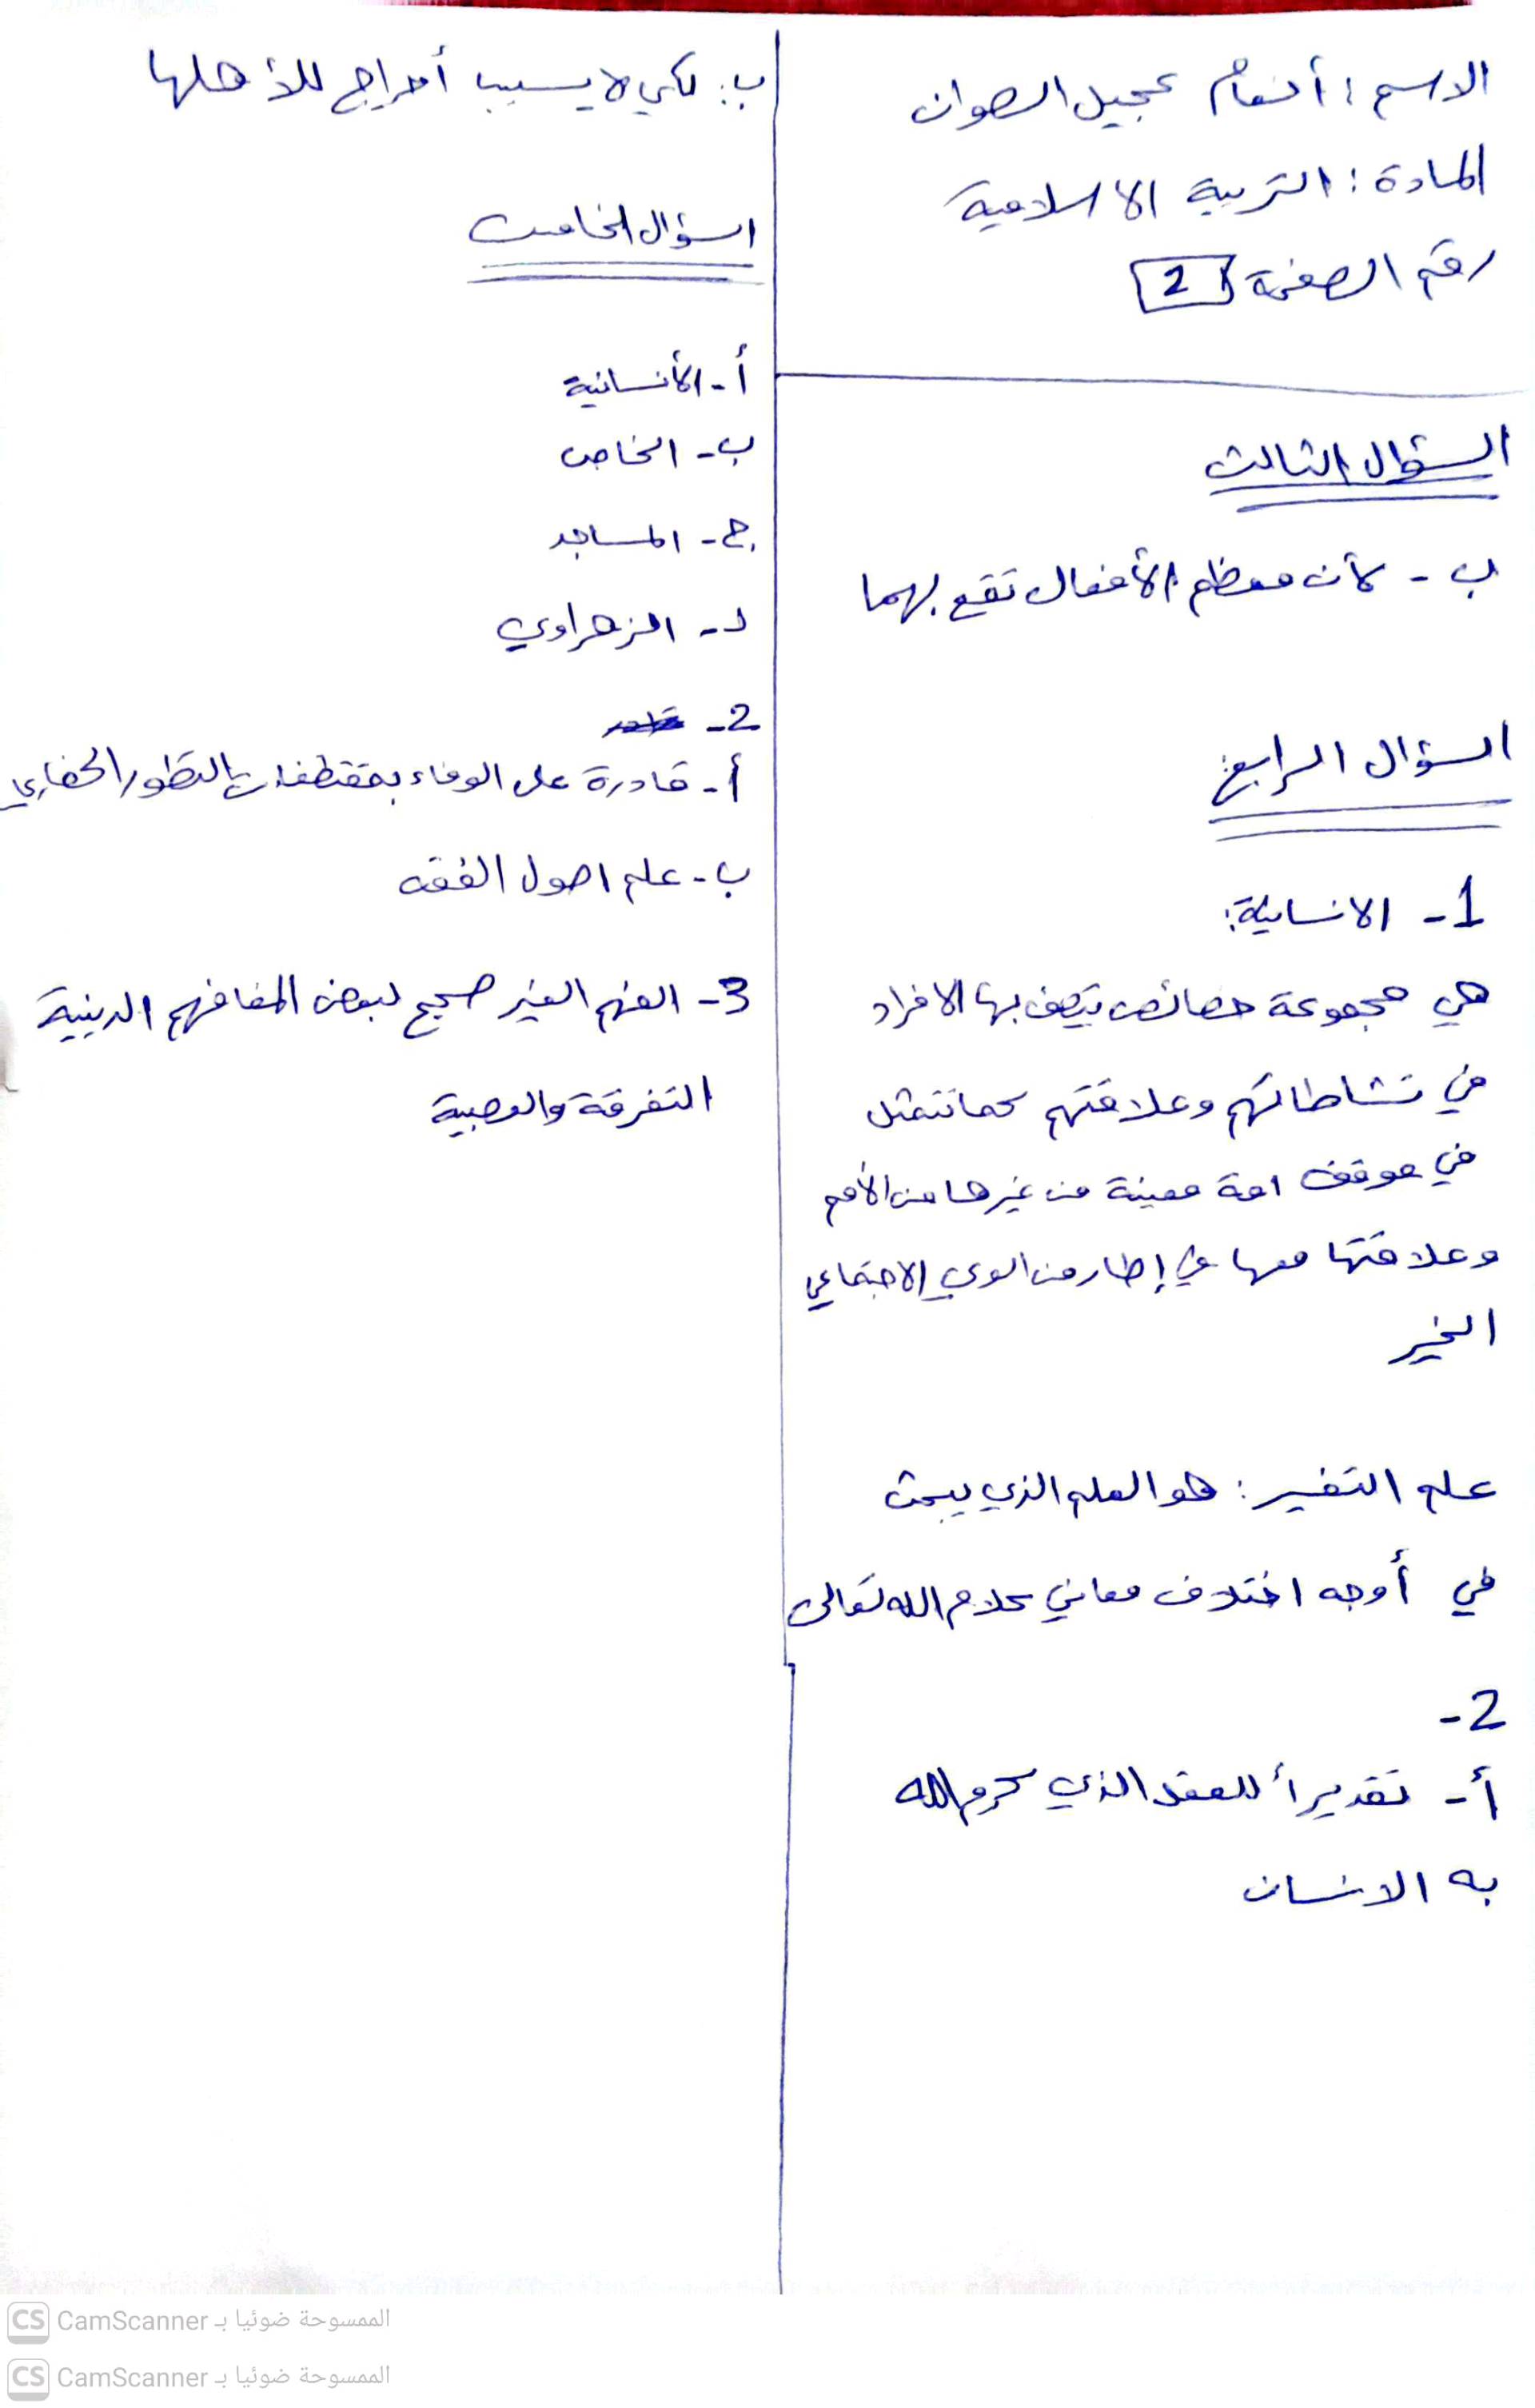 الاسم : أنعام عجيل الصوان
المادة : التربية الاسلامية
رقم الصفحة 2
السؤال الثالث
ب - لأن معظم الأفعال تقع بهما
السؤال الرابع:
1- الانسانية:
هي مجموعة خصائص يتصف بها الافراد
في نشاطاتهم وعلاقتهم كما تتمثل
في موقف امة معينة من غيرها من الأمم
وعلاقتها معها في إطار من الوعي الاجتماعي
الخير
علم التفسير : هو العلم الذي يبحث
في أوجه اختلاف معاني كلام الله تعالى
2-
أ- تقديراً للعقل الذي كرم الله
به الانسان
ب: لكي لا يسبب أحراج للأهلها
السؤال الخامس
أ- الأنسانية
ب- الخاص
ج- المساجد
د- الزهراوي
2-
أ- قادرة على الوفاء التطور الحضاري
ب- علم اصول الفقه
3- الفهم الغير صحيح لبعض المفافهم الدينية
التفرقة والعصبية
الممسوحة ضوئيا بـ CamScanner
الممسوحة ضوئيا بـ CamScanner